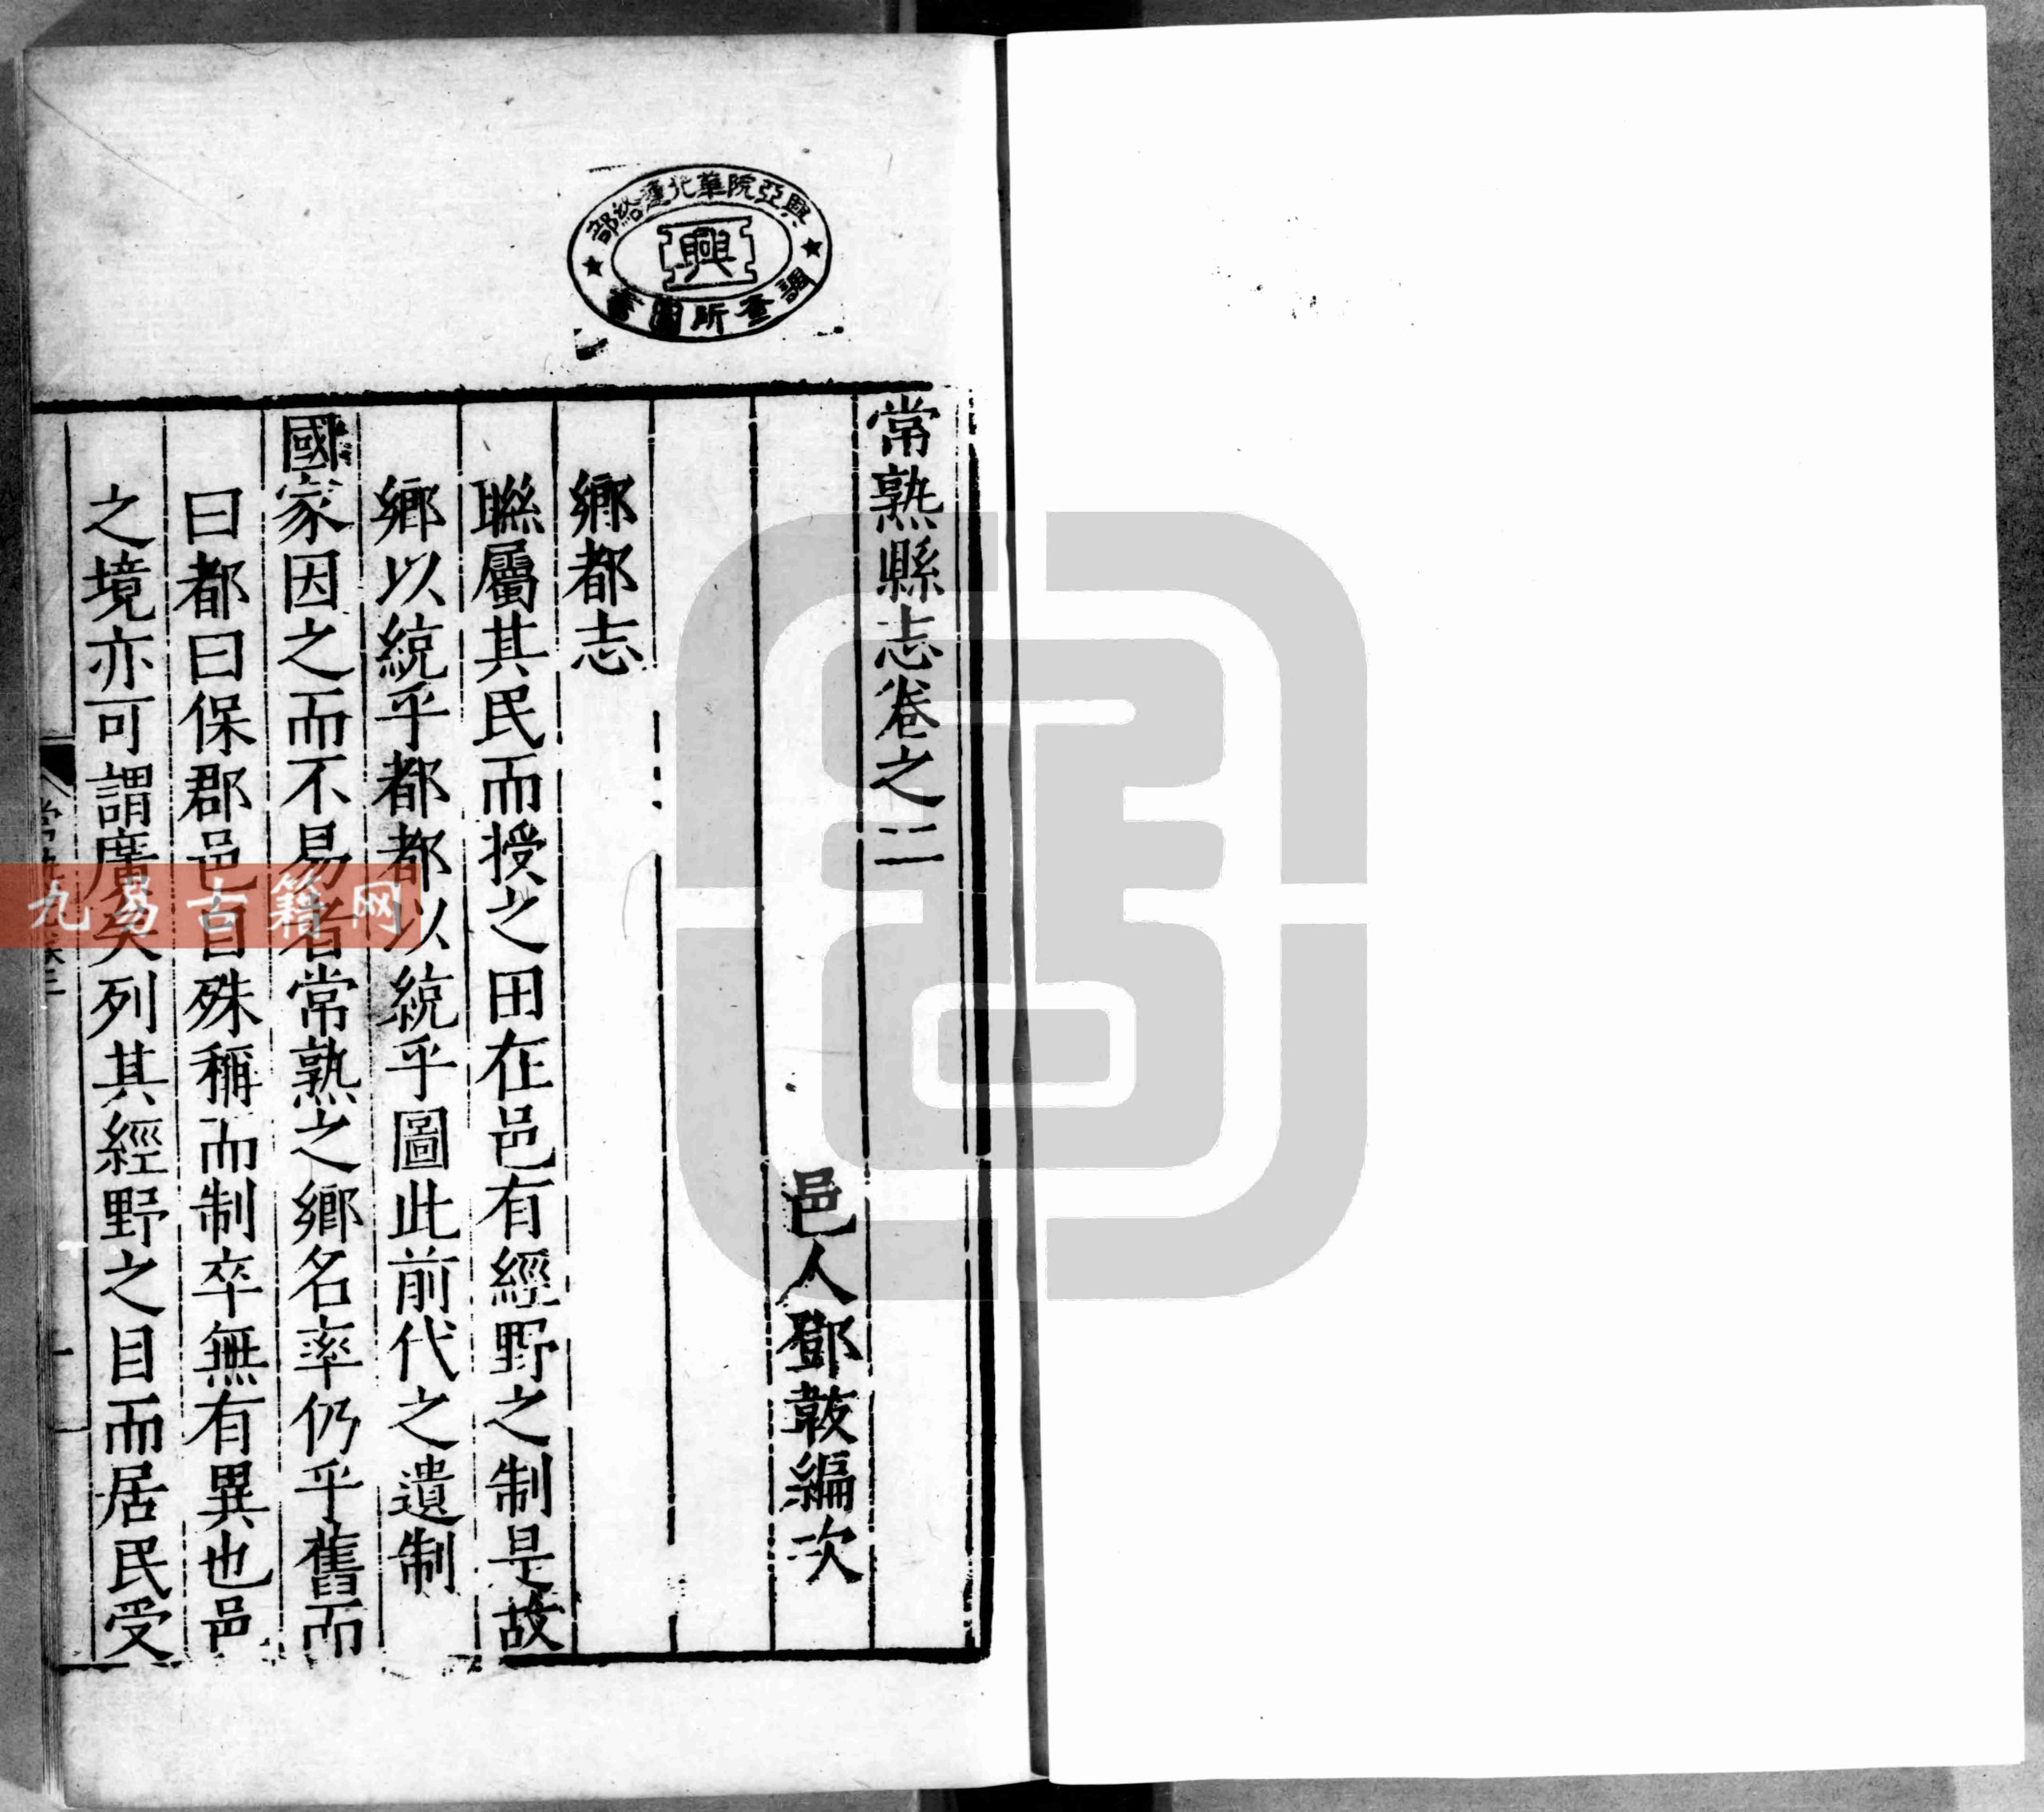 興亞院華北連絡部
興
調查所圖書
常熟縣志卷之二
邑人鄧韍編次
鄉都志
聯屬其民而授之田在邑有經野之制是故
鄉以統乎都都以統乎圖此前代之遺制
國家因之而不易者常熟之鄉名率仍乎舊而
曰都曰保郡邑自殊稱而制卒無有異也邑
之境亦可謂廣矣列其經野之目而居民受
九易古籍网